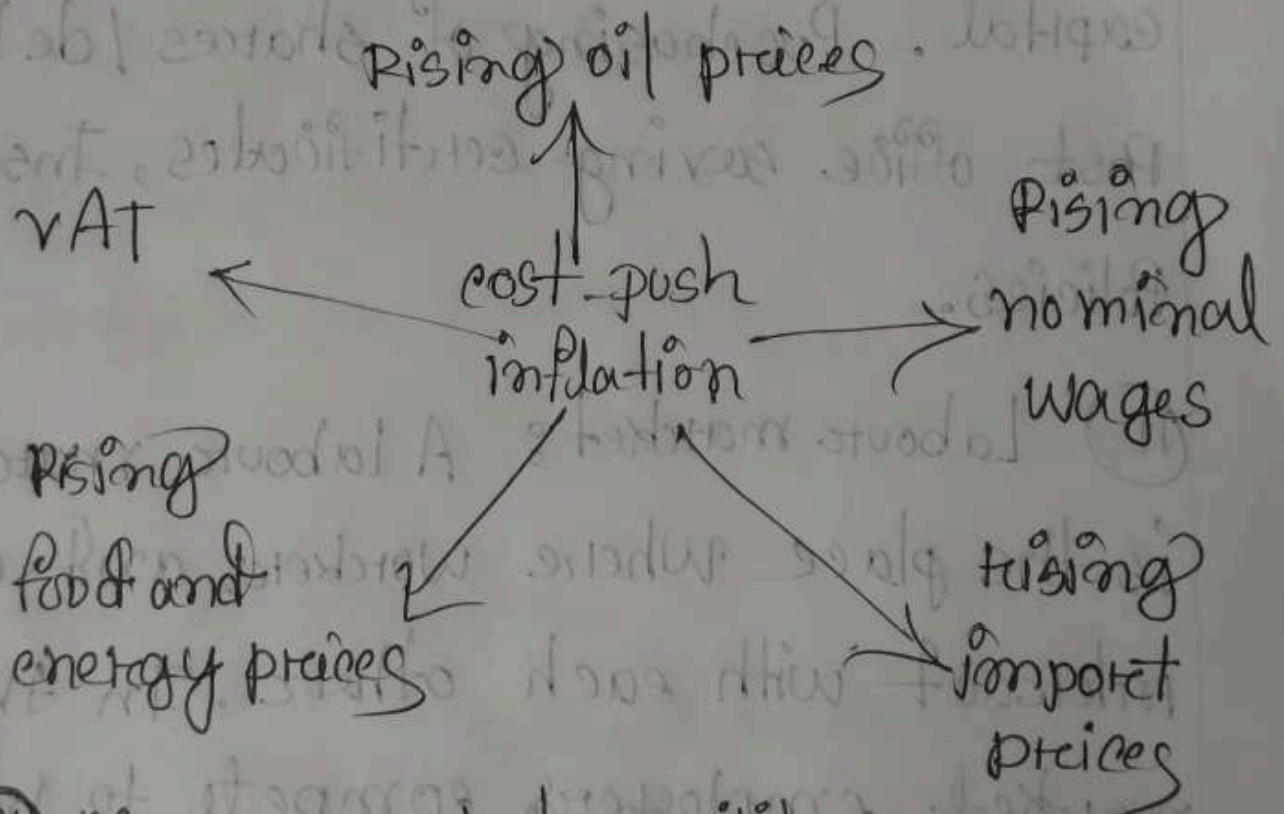 Rising oil prices.
VAT
cost-push
inflation
Rising
nominal
wages
Rising
food and
energy prices
rising
import
prices